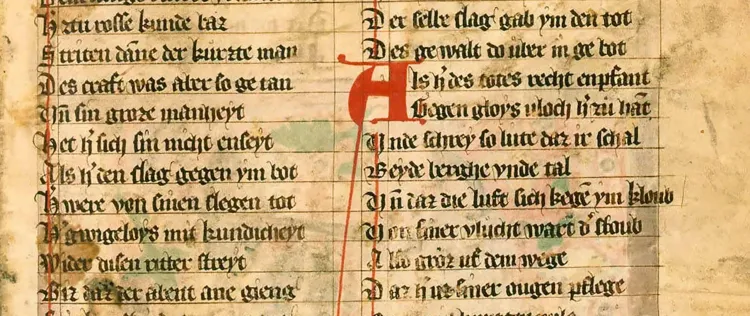 H zu rosse kunde baz
S triten dāne der kurzte man
D es craft was aber so ge tan
Vn̄ sin groze manheyt
H et h' sich sin nicht enseyt
A ls h' den slag gegen ym bot
H' were von sinen slegen tot
H' gwigeloys mit kundicheyt
W ider disen ritter streyt
B iz daz der abent ane gieng
D er selbe slag gab ym den tot
D es ge walt do uber in ge bot
A ls h' des totes recht enpfant
Gegen gloys vloch h' zu hāt
V nde schrey so lute daz ir schal
B eyde berghe vnde tal
V n̄ daz die luft sich kegē ym kloub
V on siner vlucht wart d' stoub
A lso groz uf dem wege
D az h' uz siner ougen pflege